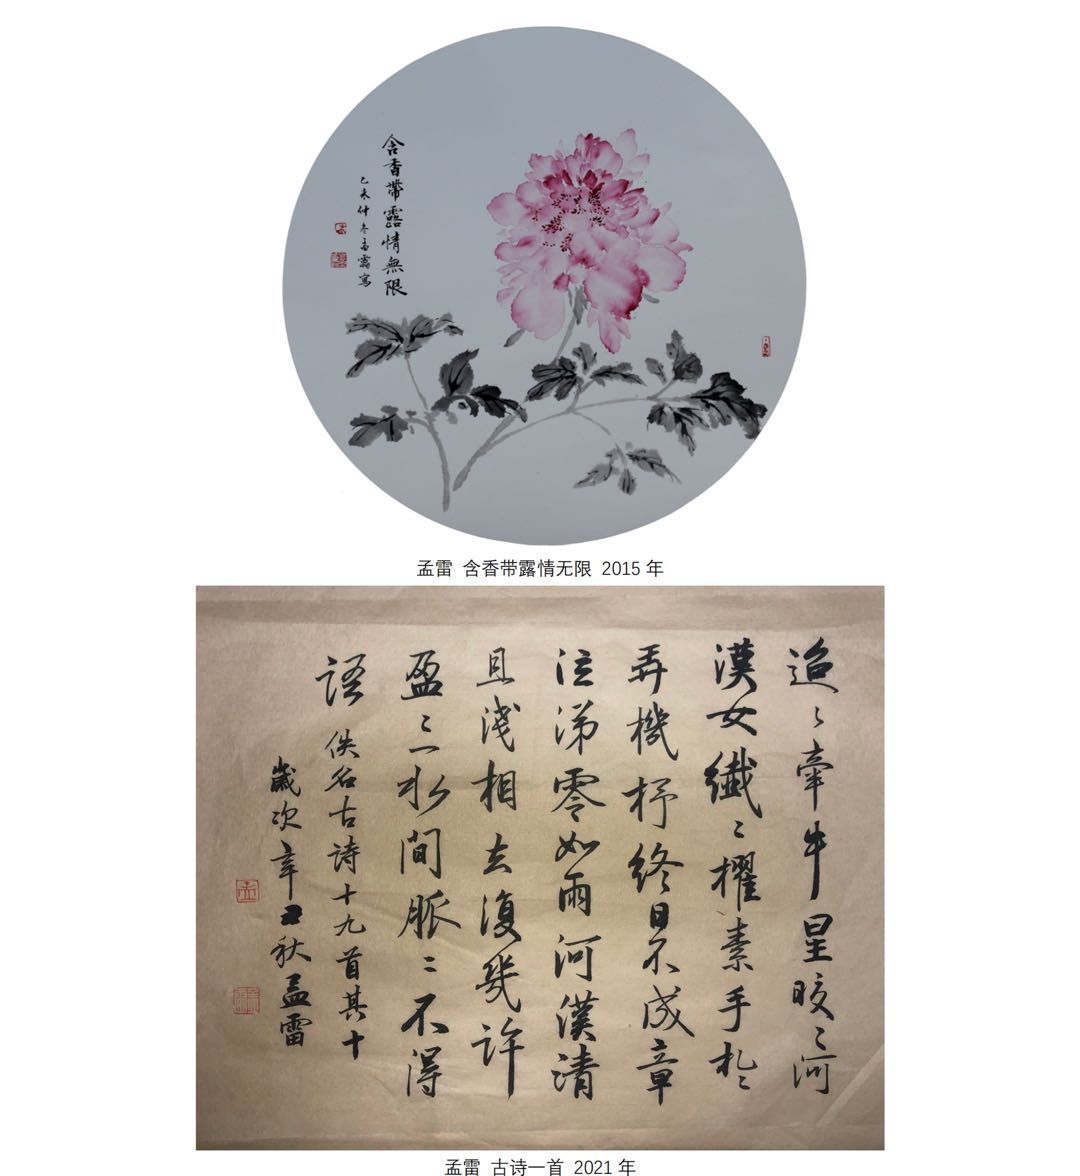 含香帶露情無限
乙未仲冬孟靁寫
孟雷 含香带露情无限 2015 年
迢〻牽牛星皎〻河
漢女纖〻擢素手札〻
弄機杼終日不成章
泣涕零如雨河漢清
且淺相去復幾許
盈〻一水間脈〻不得
語 佚名古詩十九首其十
歲次辛丑秋孟雷
孟雷 古诗一首 2021 年